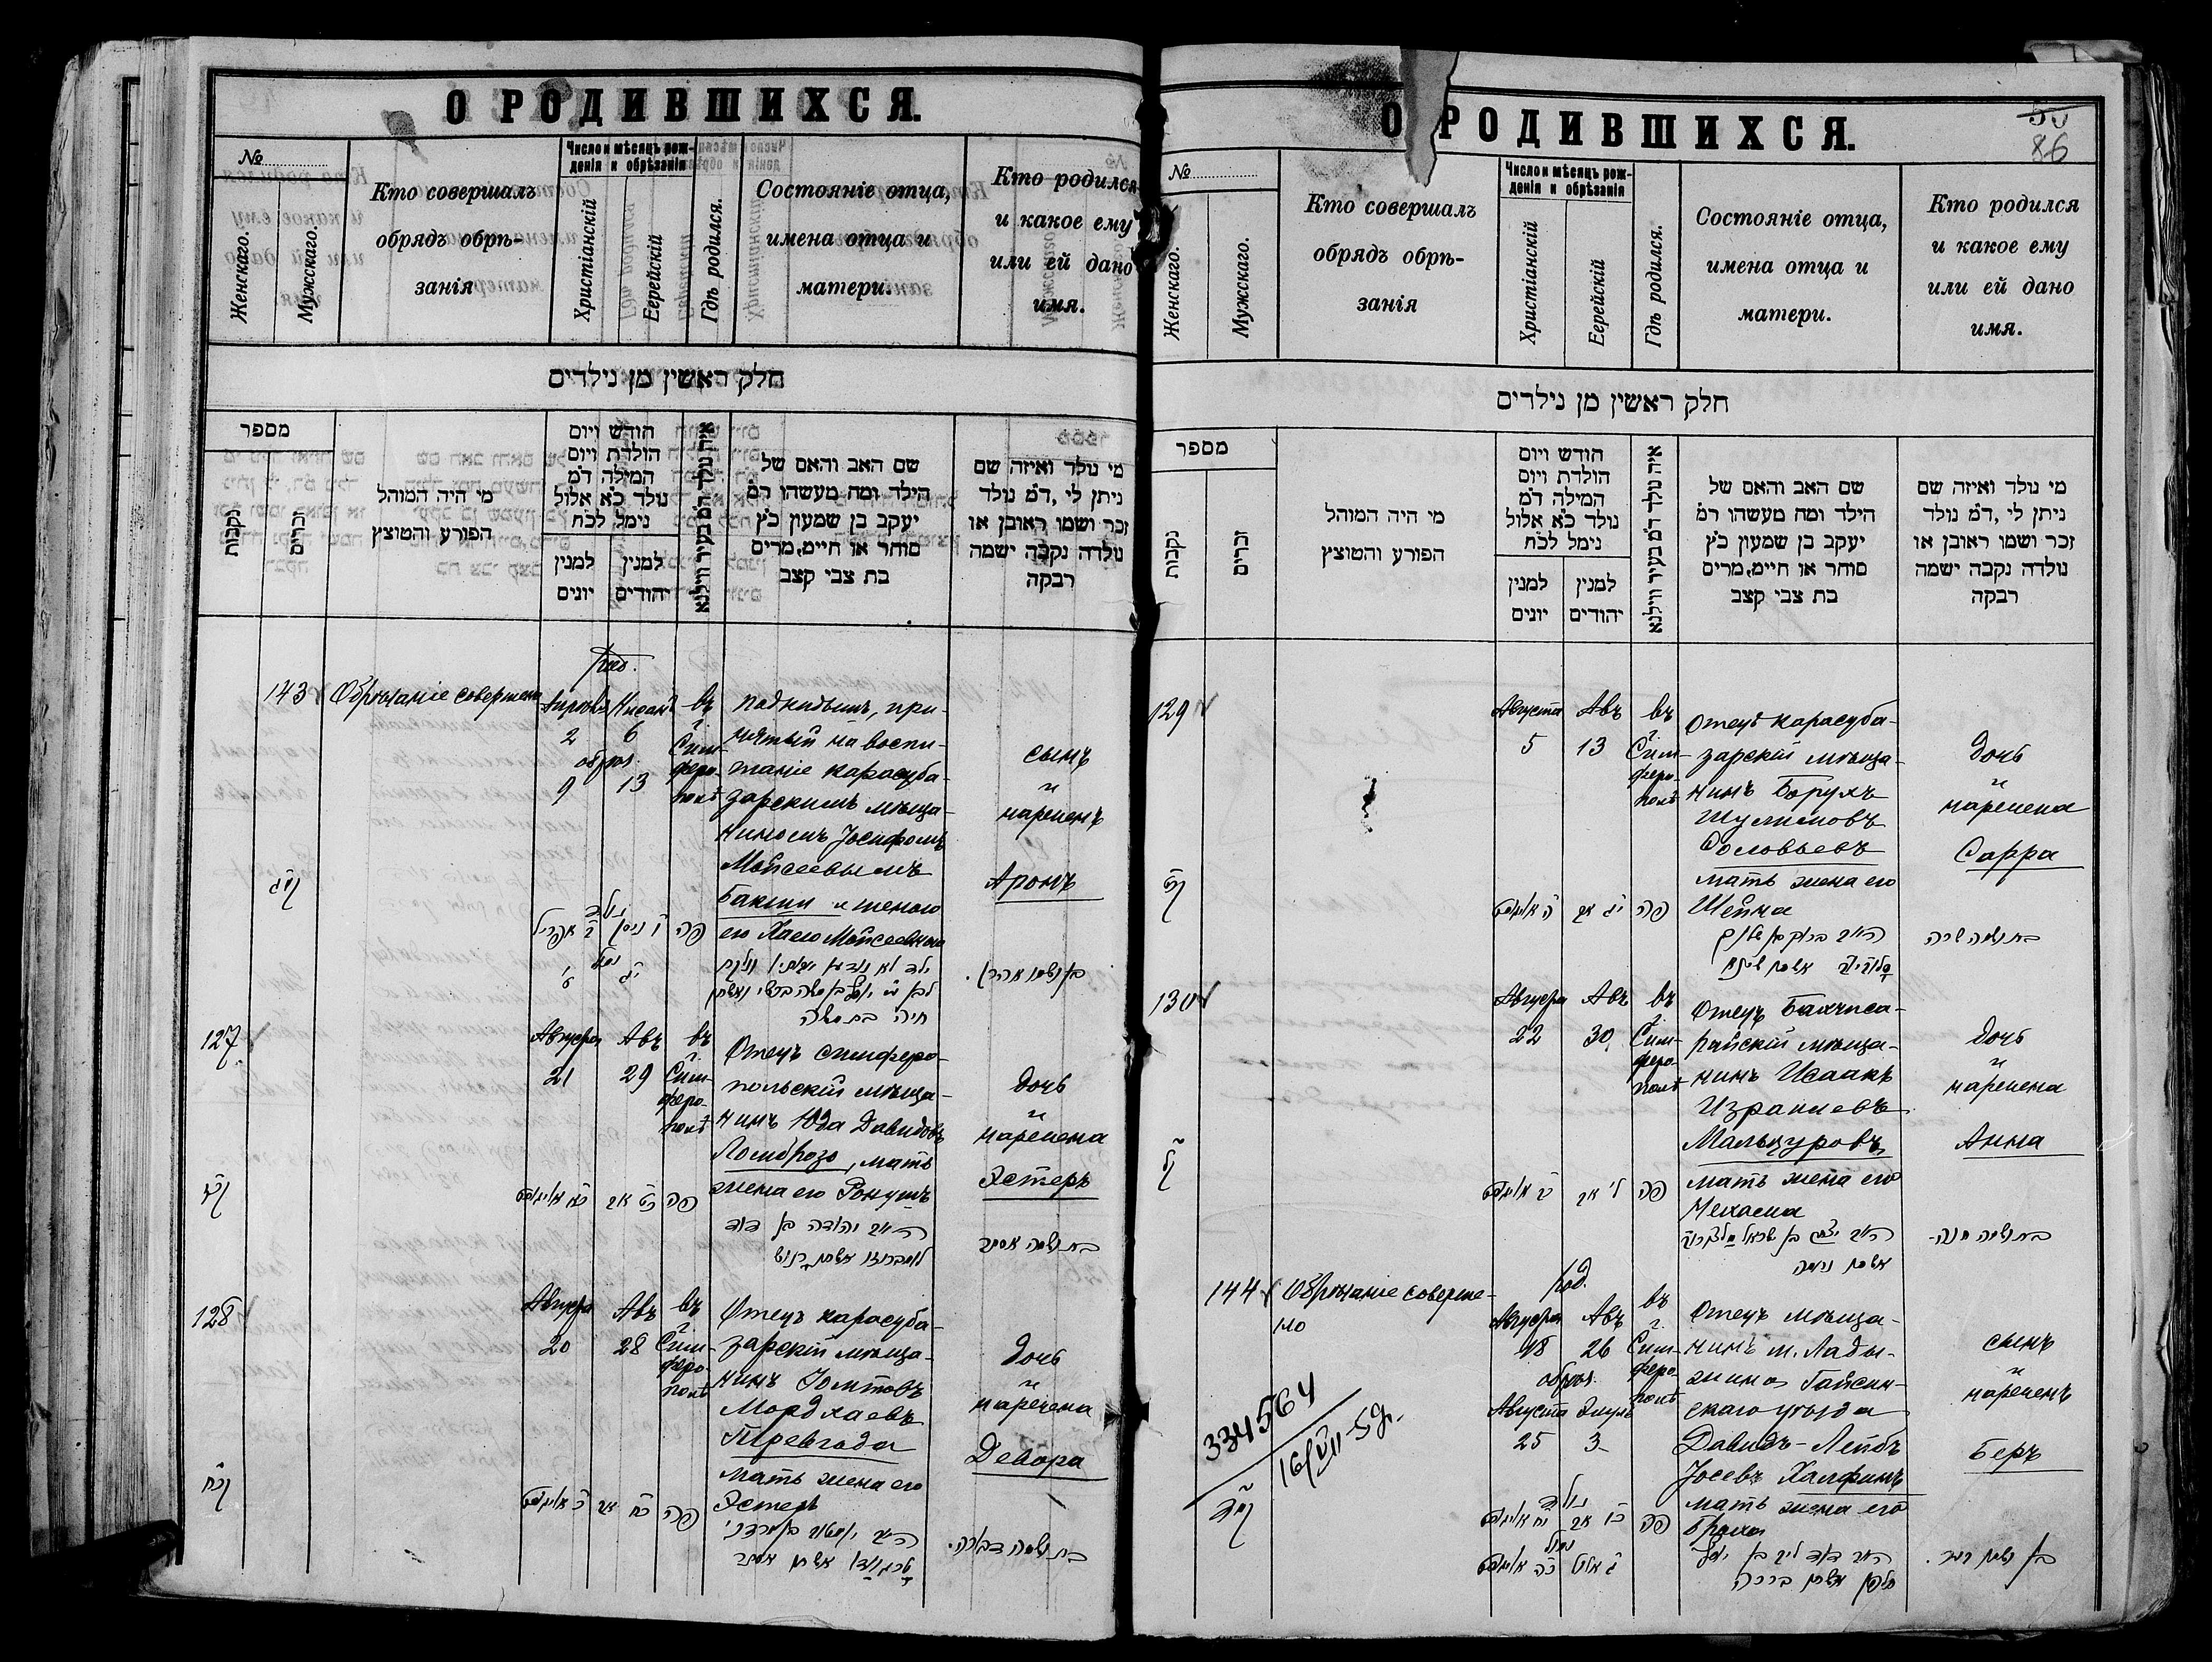 О РОДИВШИХСЯ.
№
Женскаго.
Мужскаго.
Кто совершалъ
обрядъ обрѣ-
занія
Число и мѣсяцъ рож-
денія и обрѣзанія
Христіанскій
Еерейскій
Гдѣ родился.
Состояніе отца,
имена отца и
матери.
Кто родился
и какое ему
или ей дано
имя.
חלק ראשין מן נילדים
מספר
נקבות
זכרים
מי היה המוהל
הפורע והמוצץ
חודש ויום
הולדת ויום
המילה דמ
נולד כא אלול
נימל לכח
למנין
יונים
למנין
יהודים
איה נולד דמ בעיר ווילנא
שם האב והאם של
הילד ומה מעשהו רמ
יעקב בן שמעון כץ
סוחר או חיים, מרים
בת צבי קצב
מי נולד ואיזה שם
ניתן לי, דמ נולד
זכר ושמו ראובן או
נולדה נקבה ישמה
רבקה
143
Обрѣзаніе совершено
род.
Апрѣля Нисанъ
2 6
обрѣз.
9 13
въ
г.
Сим-
феро-
полѣ
подкидышъ, при-
нятый на воспи-
таніе карасуба-
зарскимъ мѣща-
ниномъ Іосифомъ
Мойсеевымъ
Бакши и женою
его Хаею Мойсеевною
сынъ
и
нареченъ
Аронъ
חיה בת משה
127
Августа Авъ
21 29
въ
г.
Сим-
феро-
полѣ
Отецъ симферо-
польскій мѣща-
нинъ Юда Давидовъ
Ломброзо, мать
жена его Ронушъ
дочь
и
наречена
Эстеръ
פה
יהודה בן דוד
לומברוזו אשתו רנוש
בת ושמה אסתר
128
Августа Авъ
20 28
въ
г.
Сим-
феро-
полѣ
Отецъ карасуба-
зарскій мѣща-
нинъ Іомтовъ
Мордхаевъ
Тревгода
мать жена его
Эстеръ
дочь
и
наречена
Девора
פה
אשתו אסתר
בת ושמה דבורה.
О РОДИВШИХСЯ.
55
86
№
Женскаго.
Мужскаго.
Кто совершалъ
обрядъ обрѣ-
занія
Число и мѣсяцъ рож-
денія и обрѣзанія
Христіанскій
Еерейскій
Гдѣ родился.
Состояніе отца,
имена отца и
матери.
Кто родился
и какое ему
или ей дано
имя.
חלק ראשין מן נילדים
מספר
נקבות
זכרים
מי היה המוהל
הפורע והמוצץ
חודש ויום
הולדת ויום
המילה דמ
נולד כא אלול
נימל לכח
למנין
יונים
למנין
יהודים
איה נולד דמ בעיר ווילנא
שם האב והאם של
הילד ומה מעשהו רמ
יעקב בן שמעון כץ
סוחר או חיים, מרים
בת צבי קצב
מי נולד ואיזה שם
ניתן לי, דמ נולד
זכר ושמו ראובן או
נולדה נקבה ישמה
רבקה
129
Августа Авъ
5 13
въ
г.
Сим-
феро-
полѣ
Отецъ карасуба-
зарскій мѣща-
нинъ Борухъ
Шулимовъ
Соловьевъ
мать жена его
Шейна
дочь
и
наречена
Сарра
פה
בת ושמה שרה
130
Августа Авъ
22 30
въ
г.
Сим-
феро-
полѣ
Отецъ Бахчиса-
райскій мѣща-
нинъ Исаакъ
Израилевъ
Мальцуровъ
мать жена его
Нехама
дочь
и
наречена
Анна
פה
אשתו נחמה
בת ושמה חנה.
144
Обрѣзаніе соверше-
но
род.
Августа Авъ
18 26
обрѣз.
Августа Элулъ
25 3
въ
г.
Сим-
феро-
полѣ
Отецъ мѣща-
нинъ м. Лады-
жина Гайсин-
скаго уѣзда
Давидъ-Лейбъ
Іосевъ Халфинъ
мать жена его
Броха
сынъ
и
нареченъ
Беръ
334564
16/VII-59.
פה
דוד ליב בן יוסף
חלפין אשתו ברכה